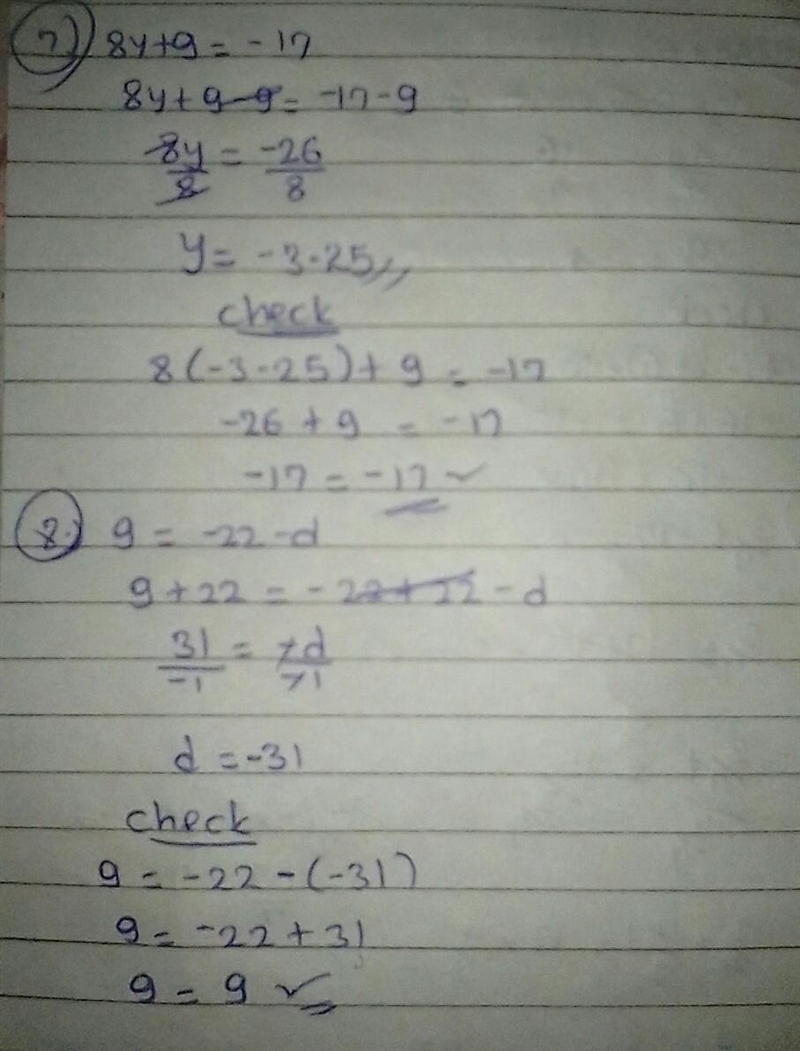 7) 8y+9 = -17
8y + 9 - 9 = -17 - 9
8y/8 = -26/8
y = -3.25
check
8(-3.25) + 9 = -17
-26 + 9 = -17
-17 = -17 ✓
8.) 9 = -22 - d
9 + 22 = -22 + 22 - d
31/-1 = -d/-1
d = -31
check
9 = -22 - (-31)
9 = -22 + 31
9 = 9 ✓